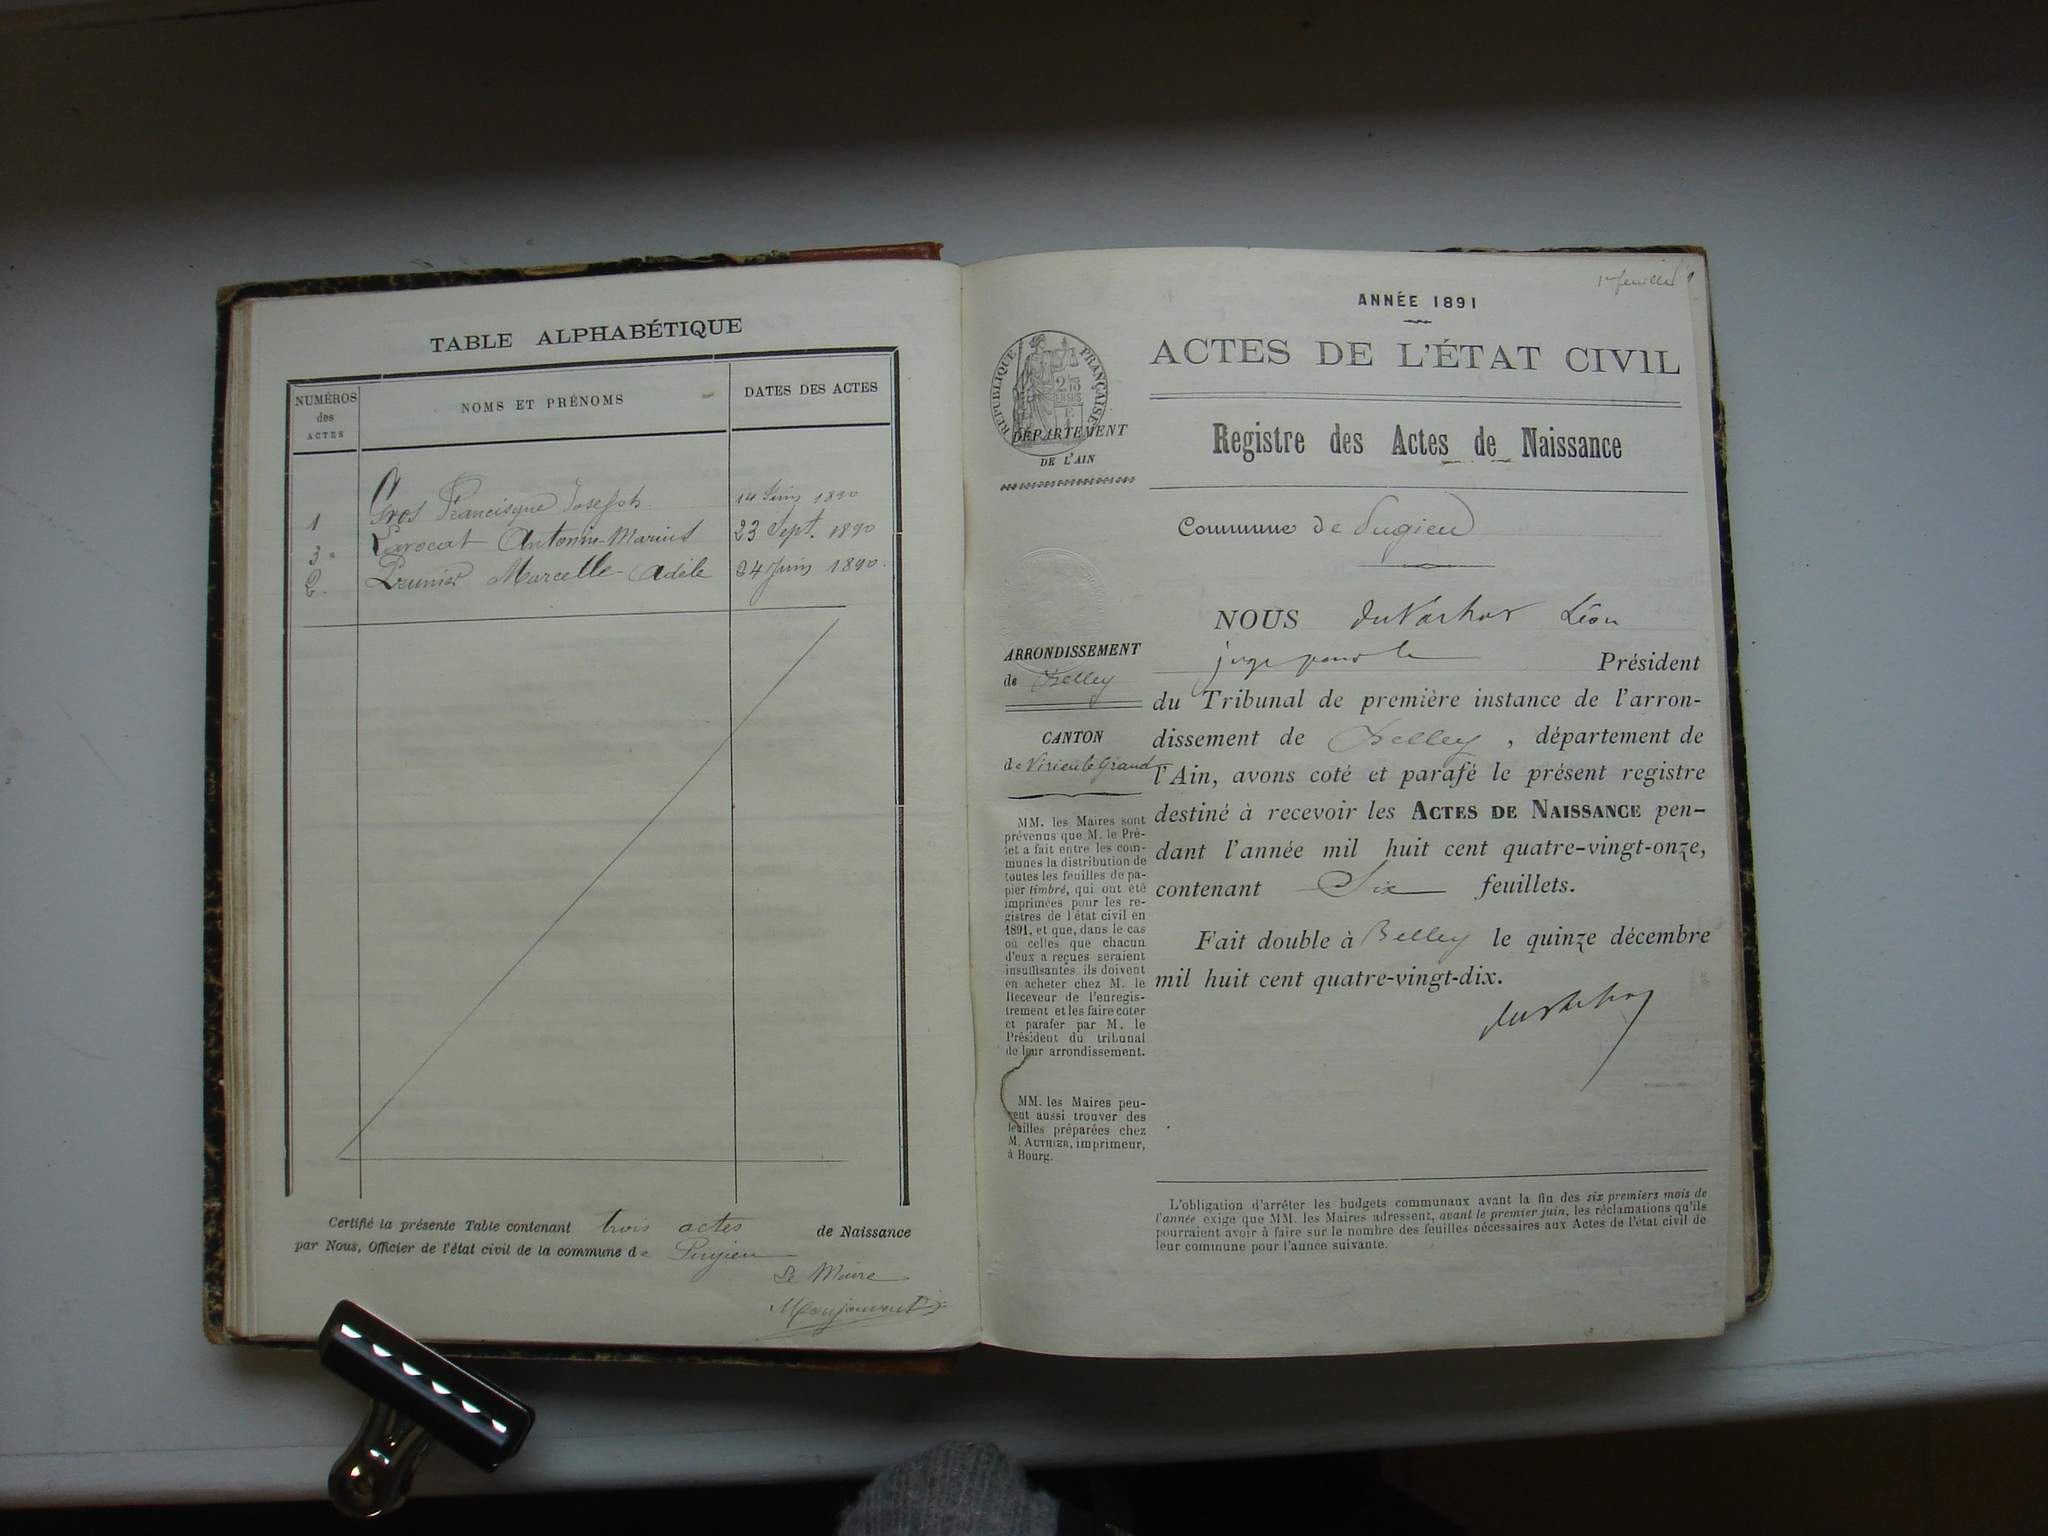 TABLE ALPHABÉTIQUE
NUMÉROS des ACTES
NOMS ET PRÉNOMS
DATES DES ACTES
1 Gros Francisque Joseph. 14 Juin 1890
3 Lavocat Antonin-Marius 23 Sept. 1890
2. Prunier Marcelle-Adèle 24 Juin 1890.
Certifié la présente Table contenant trois actes de Naissance
par Nous, Officier de l'état civil de la commune de Pugieu
Le Maire
1er feuillet
ANNÉE 1891
ACTES DE L'ÉTAT CIVIL
RÉPUBLIQUE FRANÇAISE
DÉPARTEMENT
DE L'AIN
Registre des Actes de Naissance
Commune de Pugieu
ARRONDISSEMENT
de Belley
CANTON
de Virieu le Grand
MM. les Maires sont
prévenus que M. le Pré-
fet a fait entre les com-
munes la distribution de
toutes les feuilles de pa-
pier timbré, qui ont été
imprimées pour les re-
gistres de l'état civil en
1891, et que, dans le cas
où celles que chacun
d'eux a reçues seraient
insuffisantes, ils doivent
en acheter chez M. le
Receveur de l'enregis-
trement et les faire coter
et parafer par M. le
Président du tribunal
de leur arrondissement.
MM. les Maires peu-
vent aussi trouver des
feuilles préparées chez
M. AUTHIER, imprimeur,
à Bourg.
NOUS Léon
juge pour le Président
du Tribunal de première instance de l'arron-
dissement de Belley, département de
l'Ain, avons coté et parafé le présent registre
destiné à recevoir les ACTES DE NAISSANCE pen-
dant l'année mil huit cent quatre-vingt-onze,
contenant Six feuillets.
Fait double à Belley le quinze décembre
mil huit cent quatre-vingt-dix.
L'obligation d'arrêter les budgets communaux avant la fin des six premiers mois de
l'année exige que MM. les Maires adressent, avant le premier juin, les réclamations qu'ils
pourraient avoir à faire sur le nombre des feuilles nécessaires aux Actes de l'état civil de
leur commune pour l'année suivante.